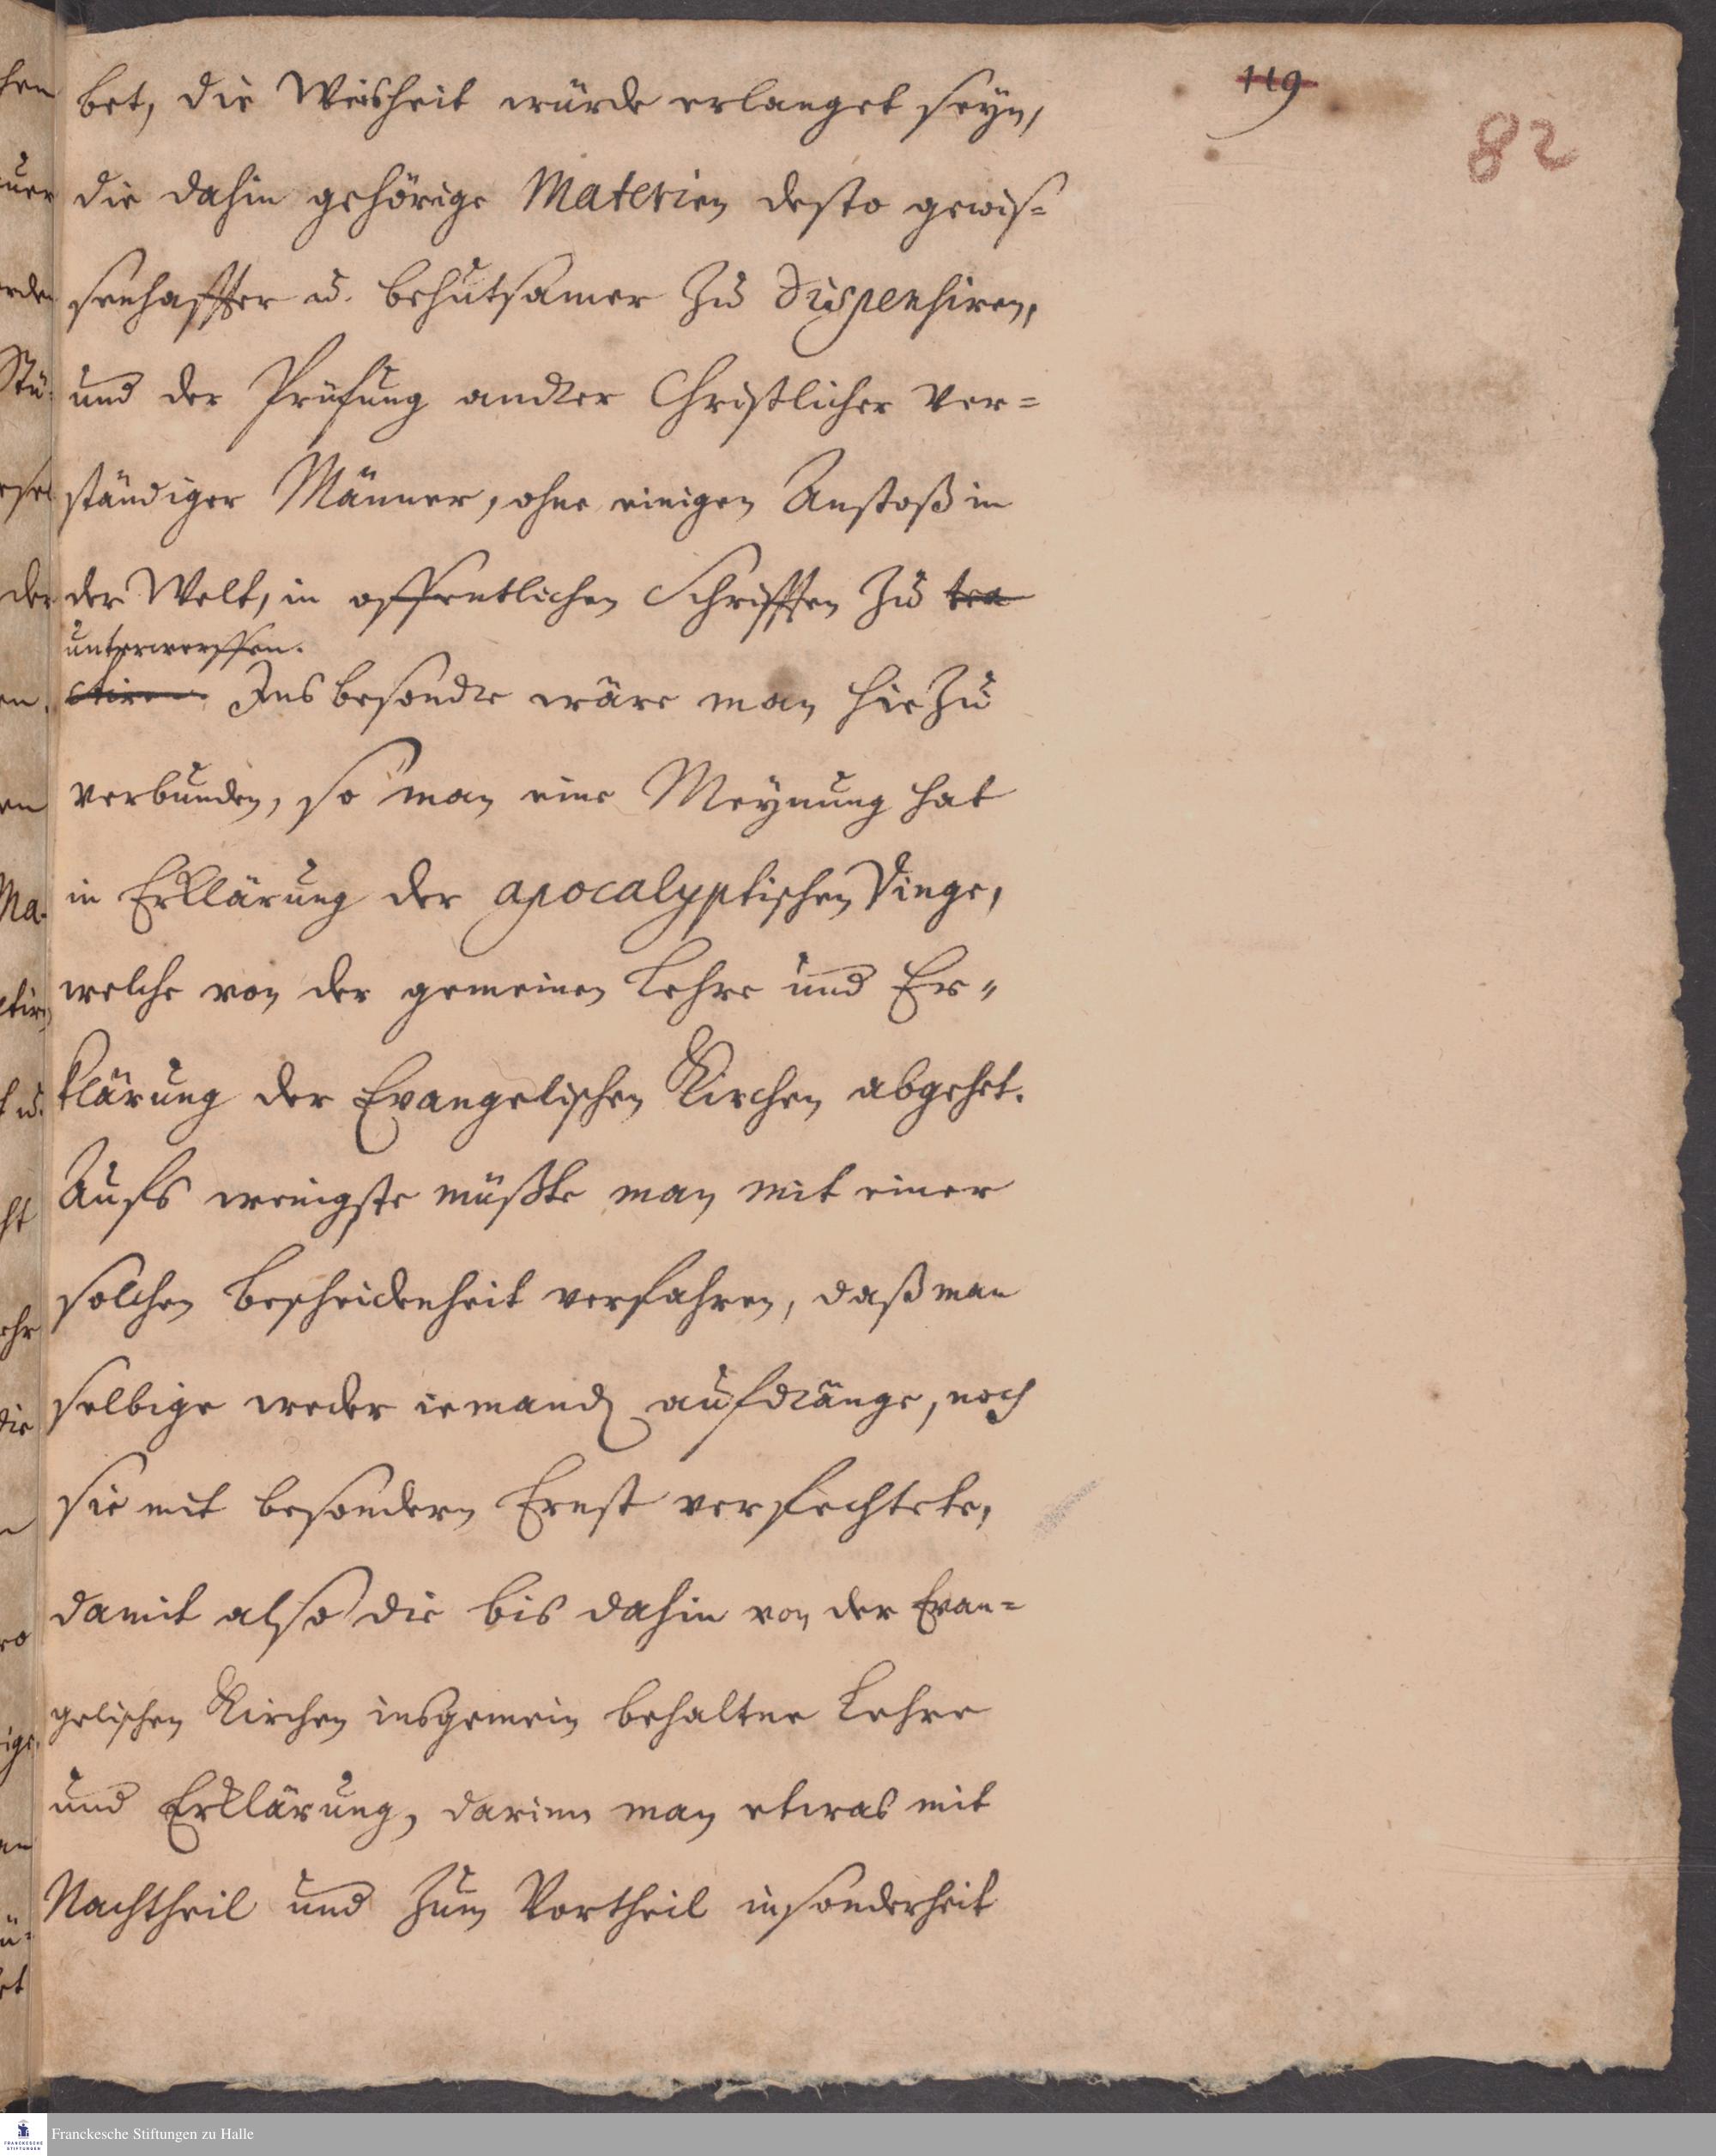 119
82
bet, die Weisheit würde erlanget seyn,
die dahin gehörige Materien desto gewis=
senhaffter u. behutsamer zu dispensiren,
und der Prüfung andrer Christlicher ver=
ständiger Männer, ohne einigen Anstoß in
der Welt, in offentlichen Schrifften zu tra
unterwerffen.
ctiren Ins besondre wäre man hiezu
verbunden, so man eine Meynung hat
in Erklärung der apocalyptischen Dinge,
welche von der gemeinen Lehre und Er=
klärung der Evangelischen Kirchen abgehet.
Aufs wenigste müßte man mit einer
solchen Bescheidenheit verfahren, daß man
selbige weder iemand aufdränge, noch
sie mit besondern Ernst verfechtete,
damit also die bis dahin von der Evan=
gelischen Kirchen insgemein behaltne Lehre
und Erklärung, darinn man etwas mit
Nachtheil und zum Vortheil insonderheit
Franckesche Stiftungen zu Halle